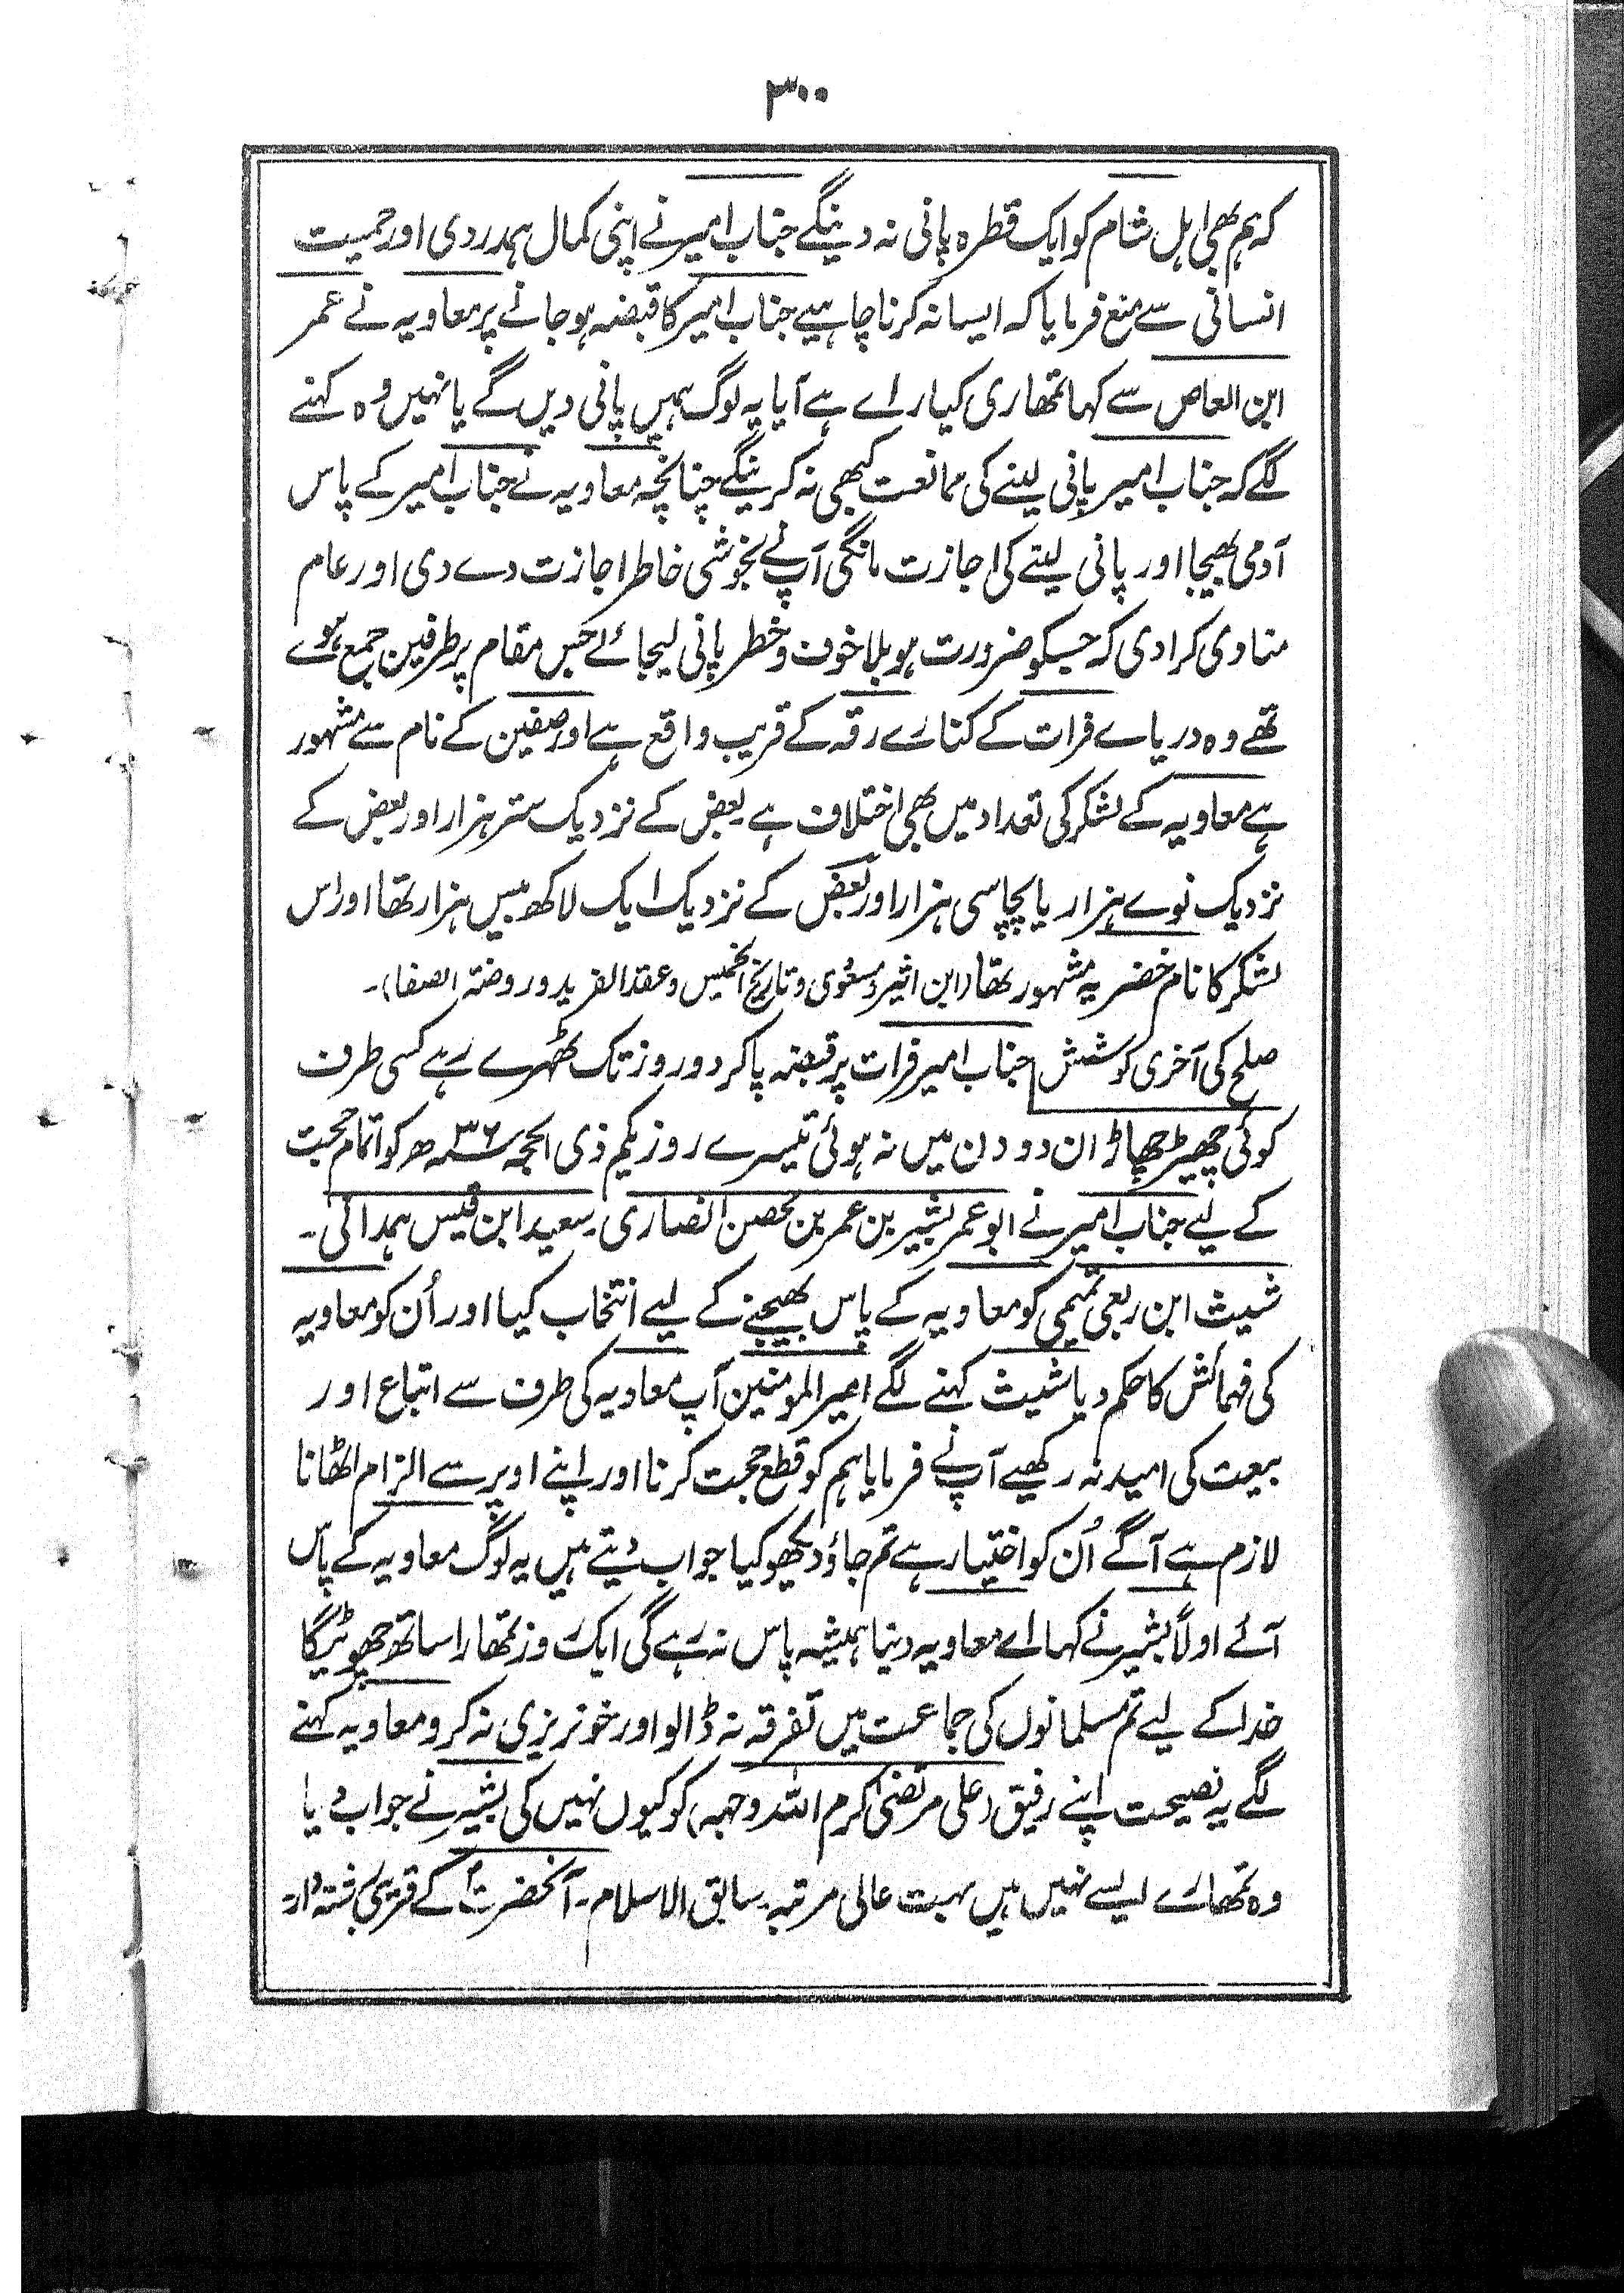 ۳۰۰
کہ ہم بھی اہل شام کو ایک قطرہ پانی نہ دینگے جناب امیر نے اپنی کمال ہمدردی اور حمیت
انسانی سے منع فرمایا کہ ایسا نہ کرنا چاہیے جناب امیر کا قبضہ ہو جانے پر معاویہ نے عمر
ابن العاص سے کہا تمھاری کیا راے ہے آیا یہ لوگ ہمیں پانی دیں گے یا نہیں وہ کہنے
لگے کہ جناب امیر پانی لینے کی ممانعت کبھی نہ کرینگے چنانچہ معاویہ نے جناب امیر کے پاس
آدمی بھیجا اور پانی لینے کی اجازت مانگی آپ نے بخوشی خاطر اجازت دے دی اور عام
منادی کرا دی کہ جسکو ضرورت ہو بلا خوف و خطر پانی لیجائے جس مقام پر طرفین جمع ہوے
تھے وہ دریاے فرات کے کنارے رقہ کے قریب واقع ہے اور صفین کے نام سے مشہور
ہے معاویہ کے لشکر کی تعداد میں بھی اختلاف ہے بعض کے نزدیک ستر ہزار اور بعض کے
نزدیک نوے ہزار یا پچاسی ہزار اور بعض کے نزدیک ایک لاکھ بیس ہزار تھا اور اس
لشکر کا نام خضریہ مشہور تھا (ابن اثیر و مسعودی و تاریخ الخمیس و عقد الفرید و روضۃ الصفا)۔
صلح کی آخری کوشش جناب امیر فرات پر قبضہ پا کر دو روز تک ٹھہرے رہے کسی طرف
کوئی چھیڑ چھاڑ ان دو دن میں نہ ہوئی تیسرے روز یکم ذی الحجہ سنہ ۳۶ھ کو اتمام حجت
کے لیے جناب امیر نے ابو عمر بشیر بن عمر بن محصن انصاری۔ سعید ابن قیس ہمدانی۔
شیث ابن ربعی تمیمی کو معاویہ کے پاس بھیجنے کے لیے انتخاب کیا اور اُن کو معاویہ
کی فہمائش کا حکم دیا شیث کہنے لگے امیر المومنین آپ معاویہ کی طرف سے اتباع اور
بیعت کی امید نہ رکھیے آپ نے فرمایا ہم کو قطع حجت کرنا اور اپنے اوپر سے الزام اٹھانا
لازم ہے آگے اُن کو اختیار ہے تم جاؤ دیکھو کیا جواب دیتے ہیں یہ لوگ معاویہ کے پاس
آئے اولاً بشیر نے کہا اے معاویہ دنیا ہمیشہ پاس نہ رہے گی ایک روز تمھارا ساتھ چھوٹیگا
خدا کے لیے تم مسلمانوں کی جماعت میں تفرقہ نہ ڈالو اور خونریزی نہ کرو معاویہ کہنے
لگے یہ نصیحت اپنے رفیق (علی مرتضیٰ کرم اللہ وجہہ) کو کیوں نہیں کی بشیر نے جواب دیا
وہ تمھارے ایسے نہیں ہیں بہت عالی مرتبہ۔ سابق الاسلام۔ آنحضرتؐ کے قریبی رشتہ دار۔